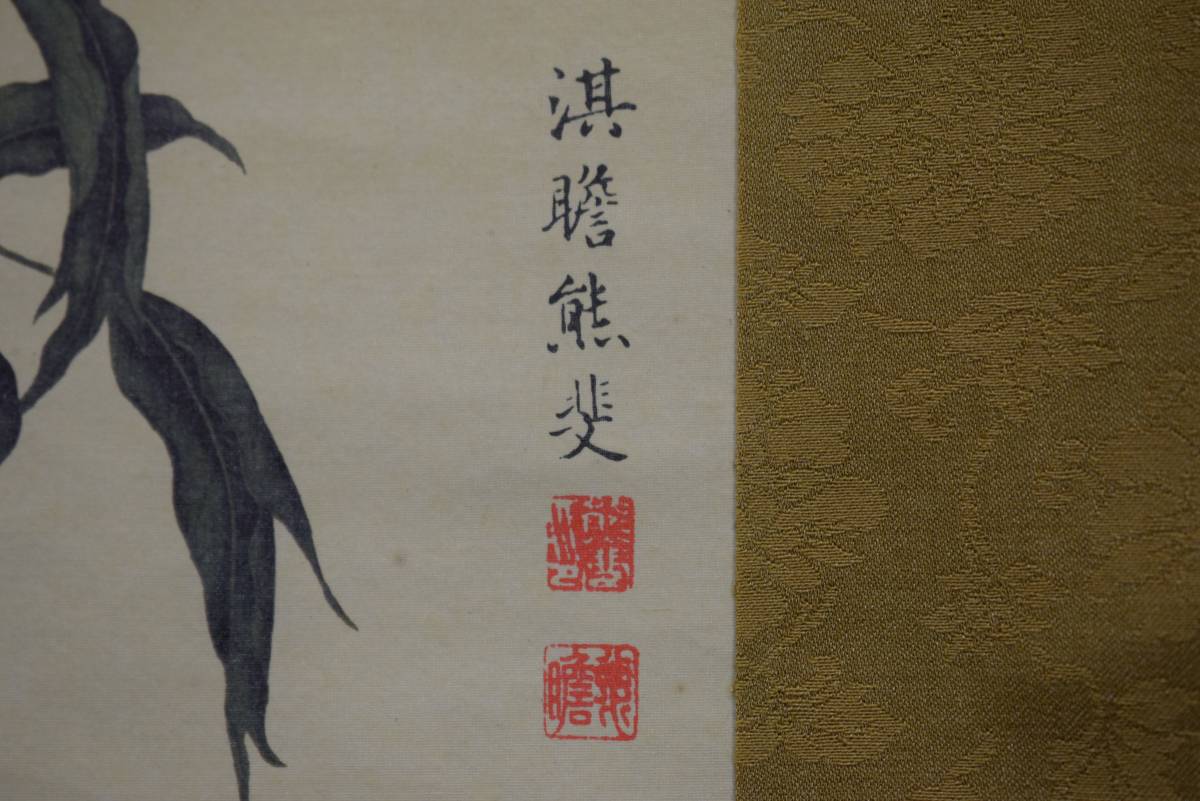 淇瞻熊斐